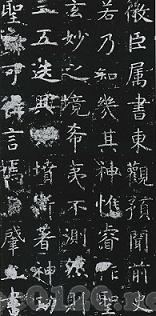 微臣屬書東觀預聞前史
若乃知幾其神惟睿作
玄妙之境希夷不測則
三五迭興墳斯著神功
聖可言焉肇書